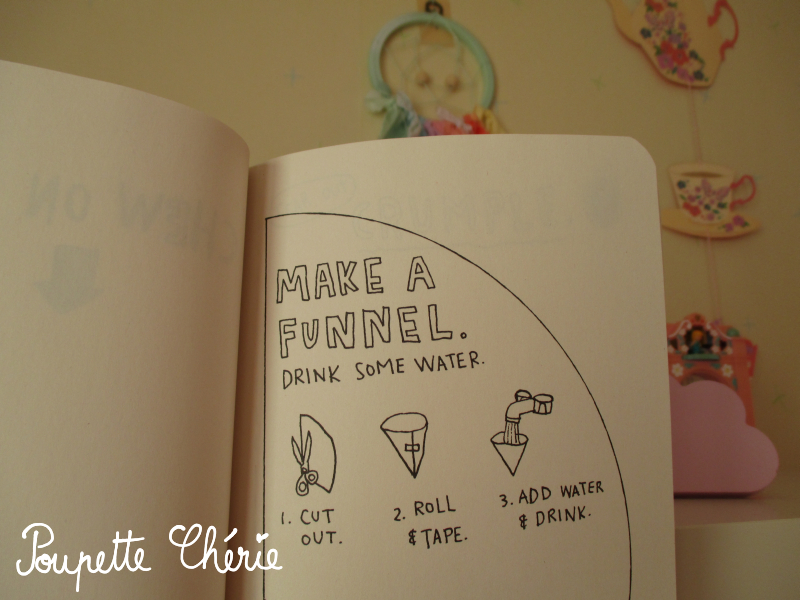 MAKE A
FUNNEL.
DRINK SOME WATER.
1. CUT
OUT.
2. ROLL
& TAPE.
3. ADD WATER
& DRINK.
Poupette Chérie